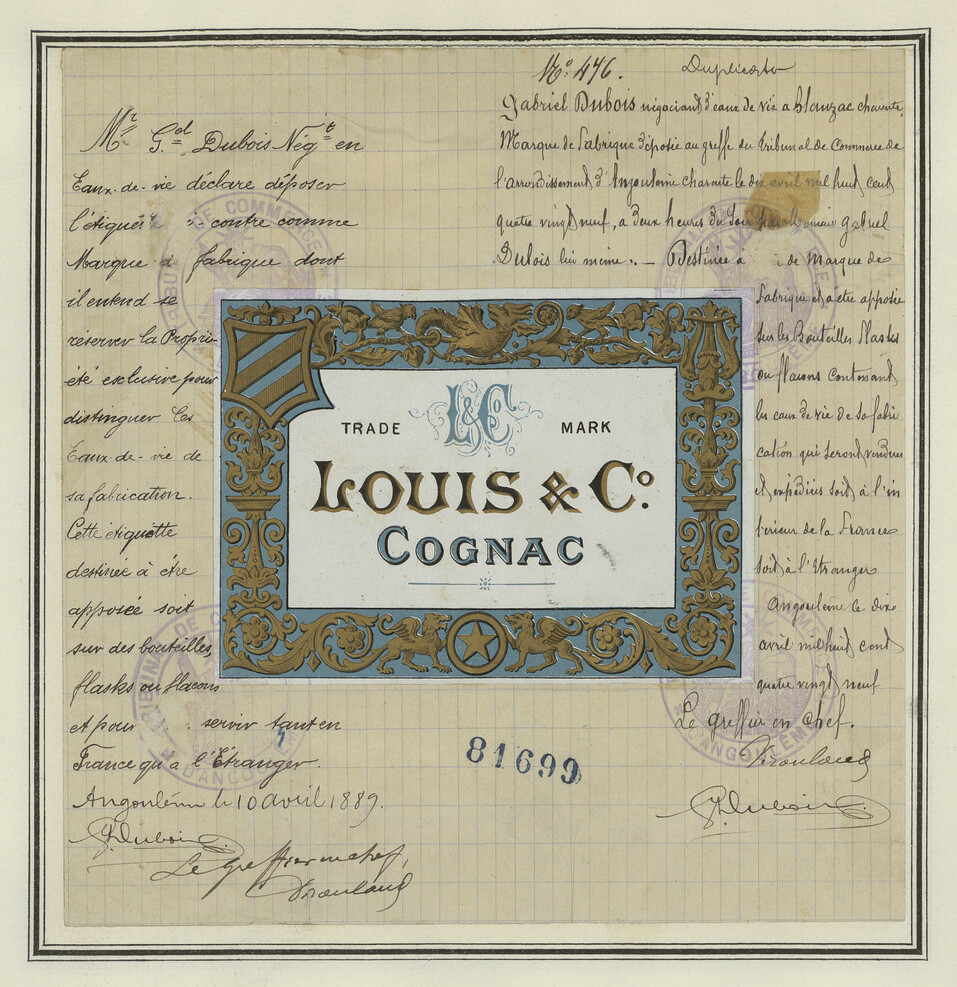 No: 476. Duplicata
Mr Gel Dubois Négt en
Eaux-de-vie déclare déposer
l'étiquette ci-contre comme
Marque de fabrique dont
il entend se
réserver la Propri-
été exclusive pour
distinguer les
Eaux-de-vie de
sa fabrication.
Cette étiquette
destinée à être
apposée soit
sur des bouteilles,
flasks ou flacons
et pour servir tant en
France qu'à l'Étranger.
Angoulême le 10 avril 1889.
G. Dubois
Le Greffier en chef,
Gabriel Dubois négociant d'eaux de vie a Blanzac charente,
Marque de fabrique déposée au greffe du Tribunal de Commerce de
l'arrondissement d'Angoulême charente le dix avril mil huit cent
quatre vingt neuf, a deux heures du soir par Monsieur Gabriel
Dubois lui même. — Destinée a de Marque de
fabrique et a être apposée
sur les Bouteilles Flasks
ou flacons contenant
les eaux de vie de sa fabri
cation qui seront vendues
et expédiées soit à l'in
térieur de la France
soit à l'Etranger
Angoulême le dix
avril mil huit cent
quatre vingt neuf
Le greffier en chef.
G. Dubois
TRADE L&Co MARK
LOUIS & Co.
COGNAC
81699
TRIBUNAL DE COMMERCE
D'ANGOULÊME